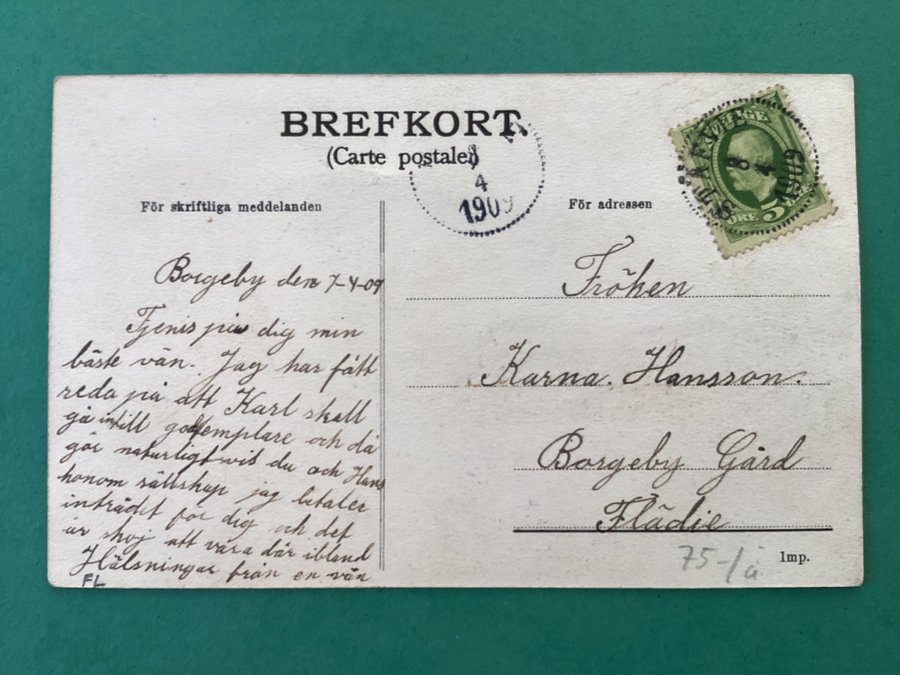 BREFKORT.
(Carte postale)
För skriftliga meddelanden
För adressen
8
4
1909
SVERIGE
8
4
1909
ÖRE 5
Borgeby den 7-4-09
Tjenis på dig min
bäste vän. Jag har fått
reda på att Karl skall
gå in till godtemplare och då
gör naturligtvis du och Hans
honom sällskap jag betaler
inträdet för dig och det
är skoj att vara där ibland
Hälsningar från en vän
FL
Fröken
Karna. Hansson.
Borgeby Gård
Flädie
75-/
Imp.